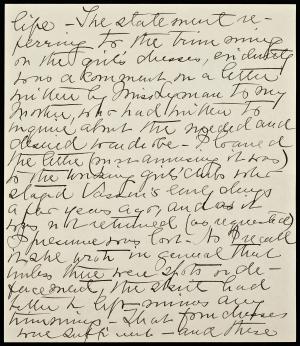 life - The statement re-
ferring to the trimming
on the girl's dresses, evidently
was a comment, on a letter
written by Miss Lyman to my
Mother, who had written to
inquire about the needed and
desired wardrobe - I loaned
the letter (most amusing it was)
to the working girls' clubs who
staged Vassar's early days
a few years ago, and as it
was not returned (as requested)
I presume was lost - As I recall
it she wrote in general that
unless there were spots or de-
facement, the skirt had
better be left minus any
trimmings - That four dresses
were sufficient - and these